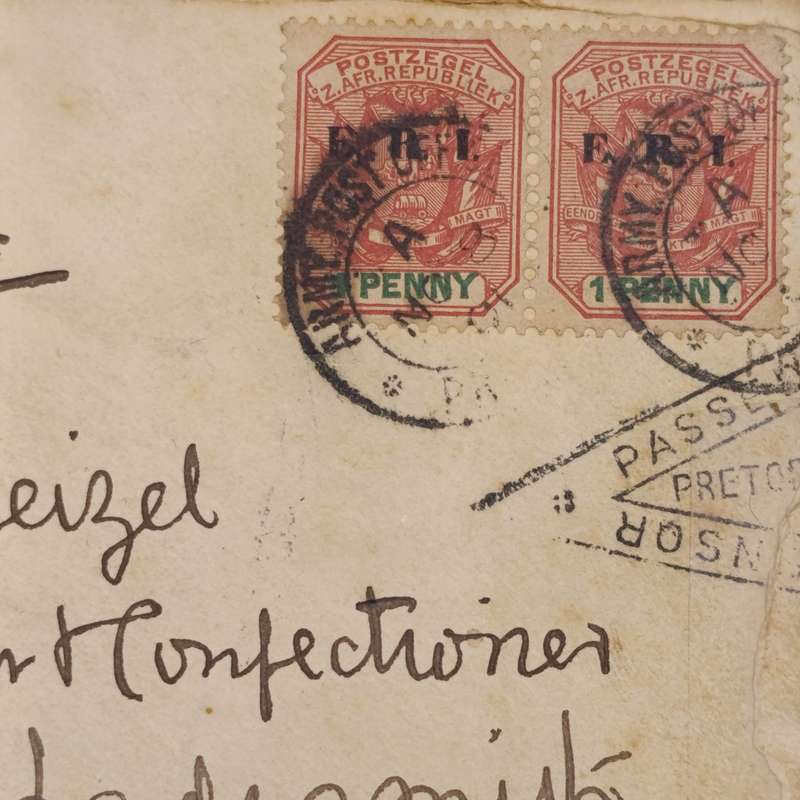 POSTZEGEL
Z. AFR. REPUBLIEK
E. R. I.
MAGT
1 PENNY
POSTZEGEL
Z. AFR. REPUBLIEK
E. R. I.
EENDR MAGT
1 PENNY
ARMY POST OFFI
A
NO
01
ARMY POST OF
A
NO
PASSE
PRETOR
NSOR
eizel
r & Confectioner
Ladysmith